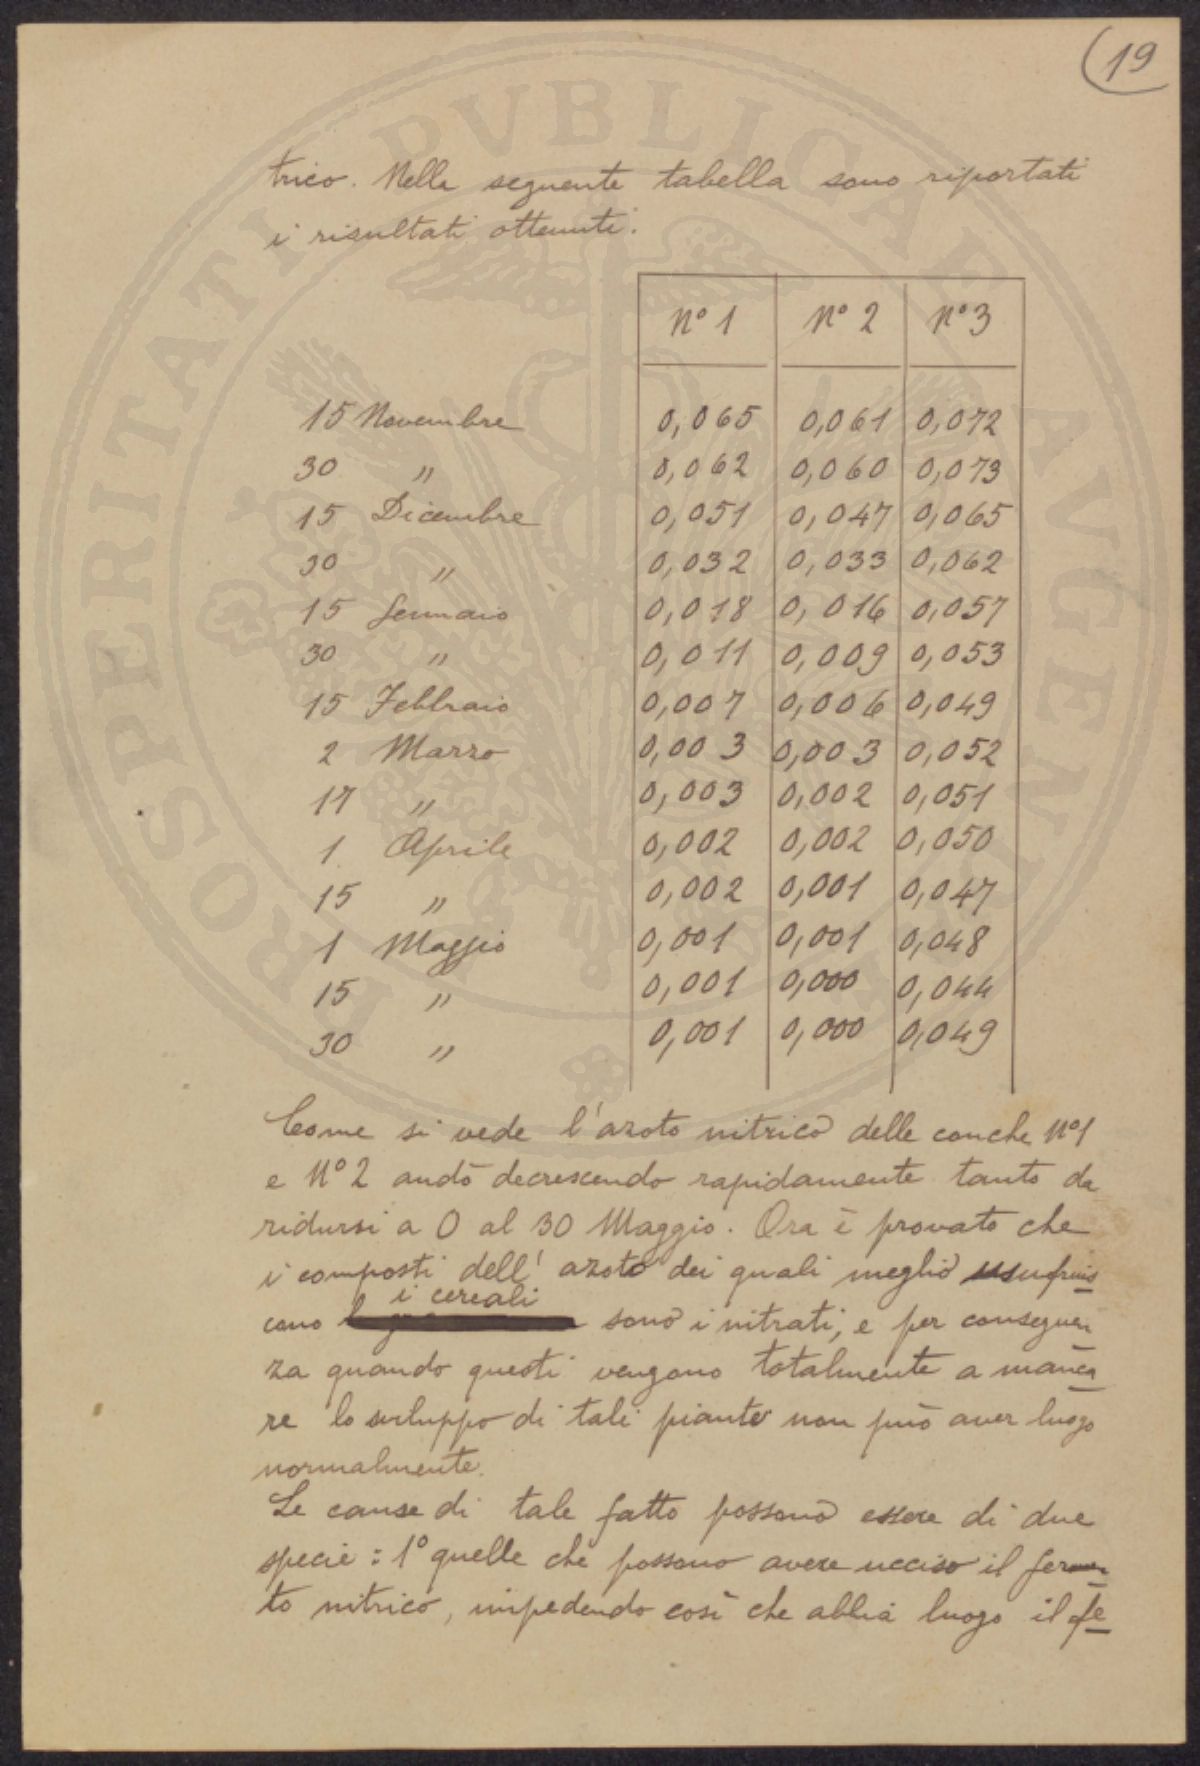 19
trico. Nella seguente tabella sono riportati
i risultati ottenuti.
N° 1 N° 2 N° 3
15 Novembre 0,065 0,061 0,072
30 " 0,062 0,060 0,073
15 Dicembre 0,051 0,047 0,065
30 " 0,032 0,033 0,062
15 Gennaio 0,018 0,016 0,057
30 " 0,011 0,009 0,053
15 Febbraio 0,007 0,006 0,049
2 Marzo 0,003 0,003 0,052
17 " 0,003 0,002 0,051
1 Aprile 0,002 0,002 0,050
15 " 0,002 0,001 0,047
1 Maggio 0,001 0,001 0,048
15 " 0,001 0,000 0,044
30 " 0,001 0,000 0,049
Come si vede l'azoto nitrico delle conche N°1
e N° 2 andò decrescendo rapidamente tanto da
ridursi a 0 al 30 Maggio. Ora è provato che
i composti dell'azoto dei quali meglio usufruis
i cereali
cono sono i nitrati, e per conseguen
za quando questi vengono totalmente a manca
re lo sviluppo di tali piante non può aver luogo
normalmente.
Le cause di tale fatto possono essere di due
specie: 1° quelle che possono avere ucciso il fermen
to nitrico, impedendo così che abbia luogo il fe
PROSPERITATI PVBLICAE AVGENDAE